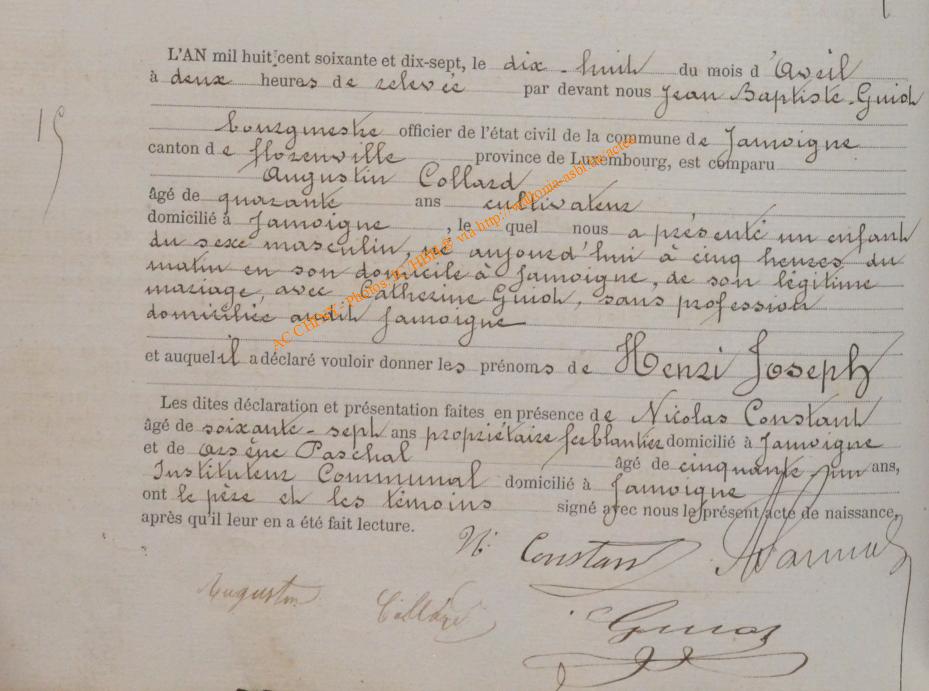 L'AN mil huit cent soixante et dix-sept, le dix-huit du mois d'Avril
à deux heures de relevée par devant nous Jean Baptiste Guiot
15
bourgmestre officier de l'état civil de la commune de Jamoigne
canton de florenville province de Luxembourg, est comparu
Augustin Collard
âgé de quarante ans cultivateur
domicilié à Jamoigne, le quel nous a présenté un enfant
du sexe masculin, né aujourd'hui à cinq heures du
matin en son domicile à Jamoigne, de son légitime
mariage avec Catherine Guiot, sans profession
domiciliée audit Jamoigne
AC CHINY - photos via http://
et auquel il a déclaré vouloir donner les prénoms de Henri Joseph
Les dites déclaration et présentation faites en présence de Nicolas Constant
âgé de soixante-sept ans propriétaire ferblantier domicilié à Jamoigne
et de Arsène Paschal âgé de cinquante-un ans,
Instituteur Communal domicilié à Jamoigne
ont le père et les témoins signé avec nous le présent acte de naissance,
après qu'il leur en a été fait lecture.
N. Constant
Augustin Collard
Guiot